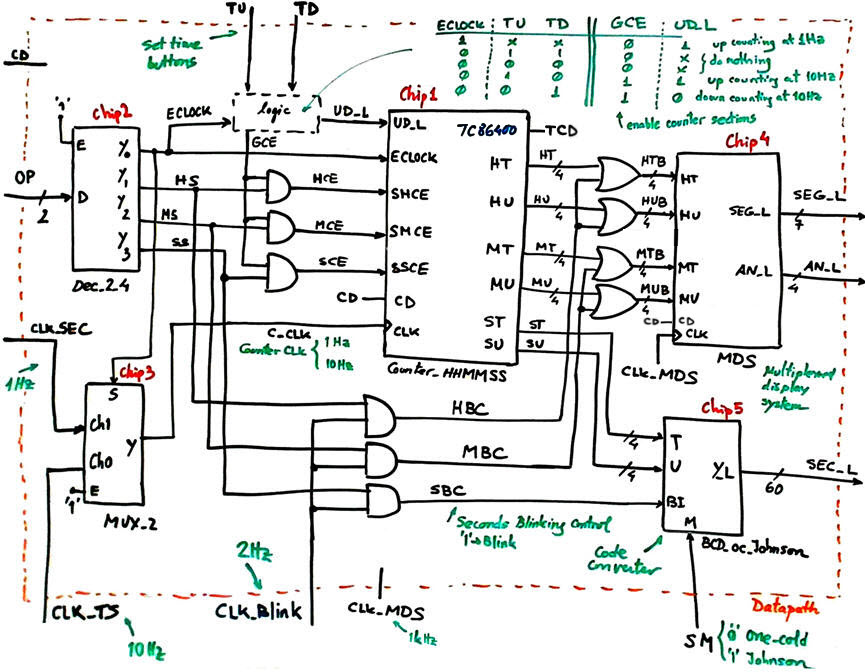 TU TD
set time
buttons
ECLOCK TU TD GCE UD_L
1 x x Ø 1 up counting at 1Hz
Ø 1 1 Ø x do nothing
Ø Ø Ø Ø x
Ø 1 Ø 1 1 up counting at 10Hz
Ø Ø 1 1 Ø down counting at 10Hz
enable counter sections
CD
'1'
Chip2
ECLOCK
logic
UD_L
GCE
E
D
Y0
Y1
Y2
Y3
OP
2
Dec_2_4
HS
MS
SS
HCE
MCE
SCE
CD
Chip1
7C86400
UD_L
ECLOCK
SHCE
SMCE
SSCE
CD
CLK
TCD
HT
HU
MT
MU
ST
SU
Counter_HHMMSS
HT
4
HU
4
MT
4
MU
4
ST
SU
HTB
4
HUB
4
MTB
4
MUB
4
Chip4
HT
HU
MT
MU
CD CD
CLK
SEG_L
AN_L
SEG_L
7
AN_L
4
MDS
CLK_MDS
Multiplexed
display
system
CLK_SEC
1Hz
C_CLK
Counter CLK { 1Hz
10Hz
Chip3
S
Ch1
Ch0
E
Y
'1'
MUX_2
HBC
MBC
SBC
Seconds Blinking Control
'1' → Blink
4
4
Chip5
T
U
BI
M
Y_L
60
SEC_L
BCD_oc_Johnson
Code
converter
2Hz
CLK_TS
10Hz
CLK_Blink
CLK_MDS
1kHz
Datapath
SM { '0' One-cold
'1' Johnson